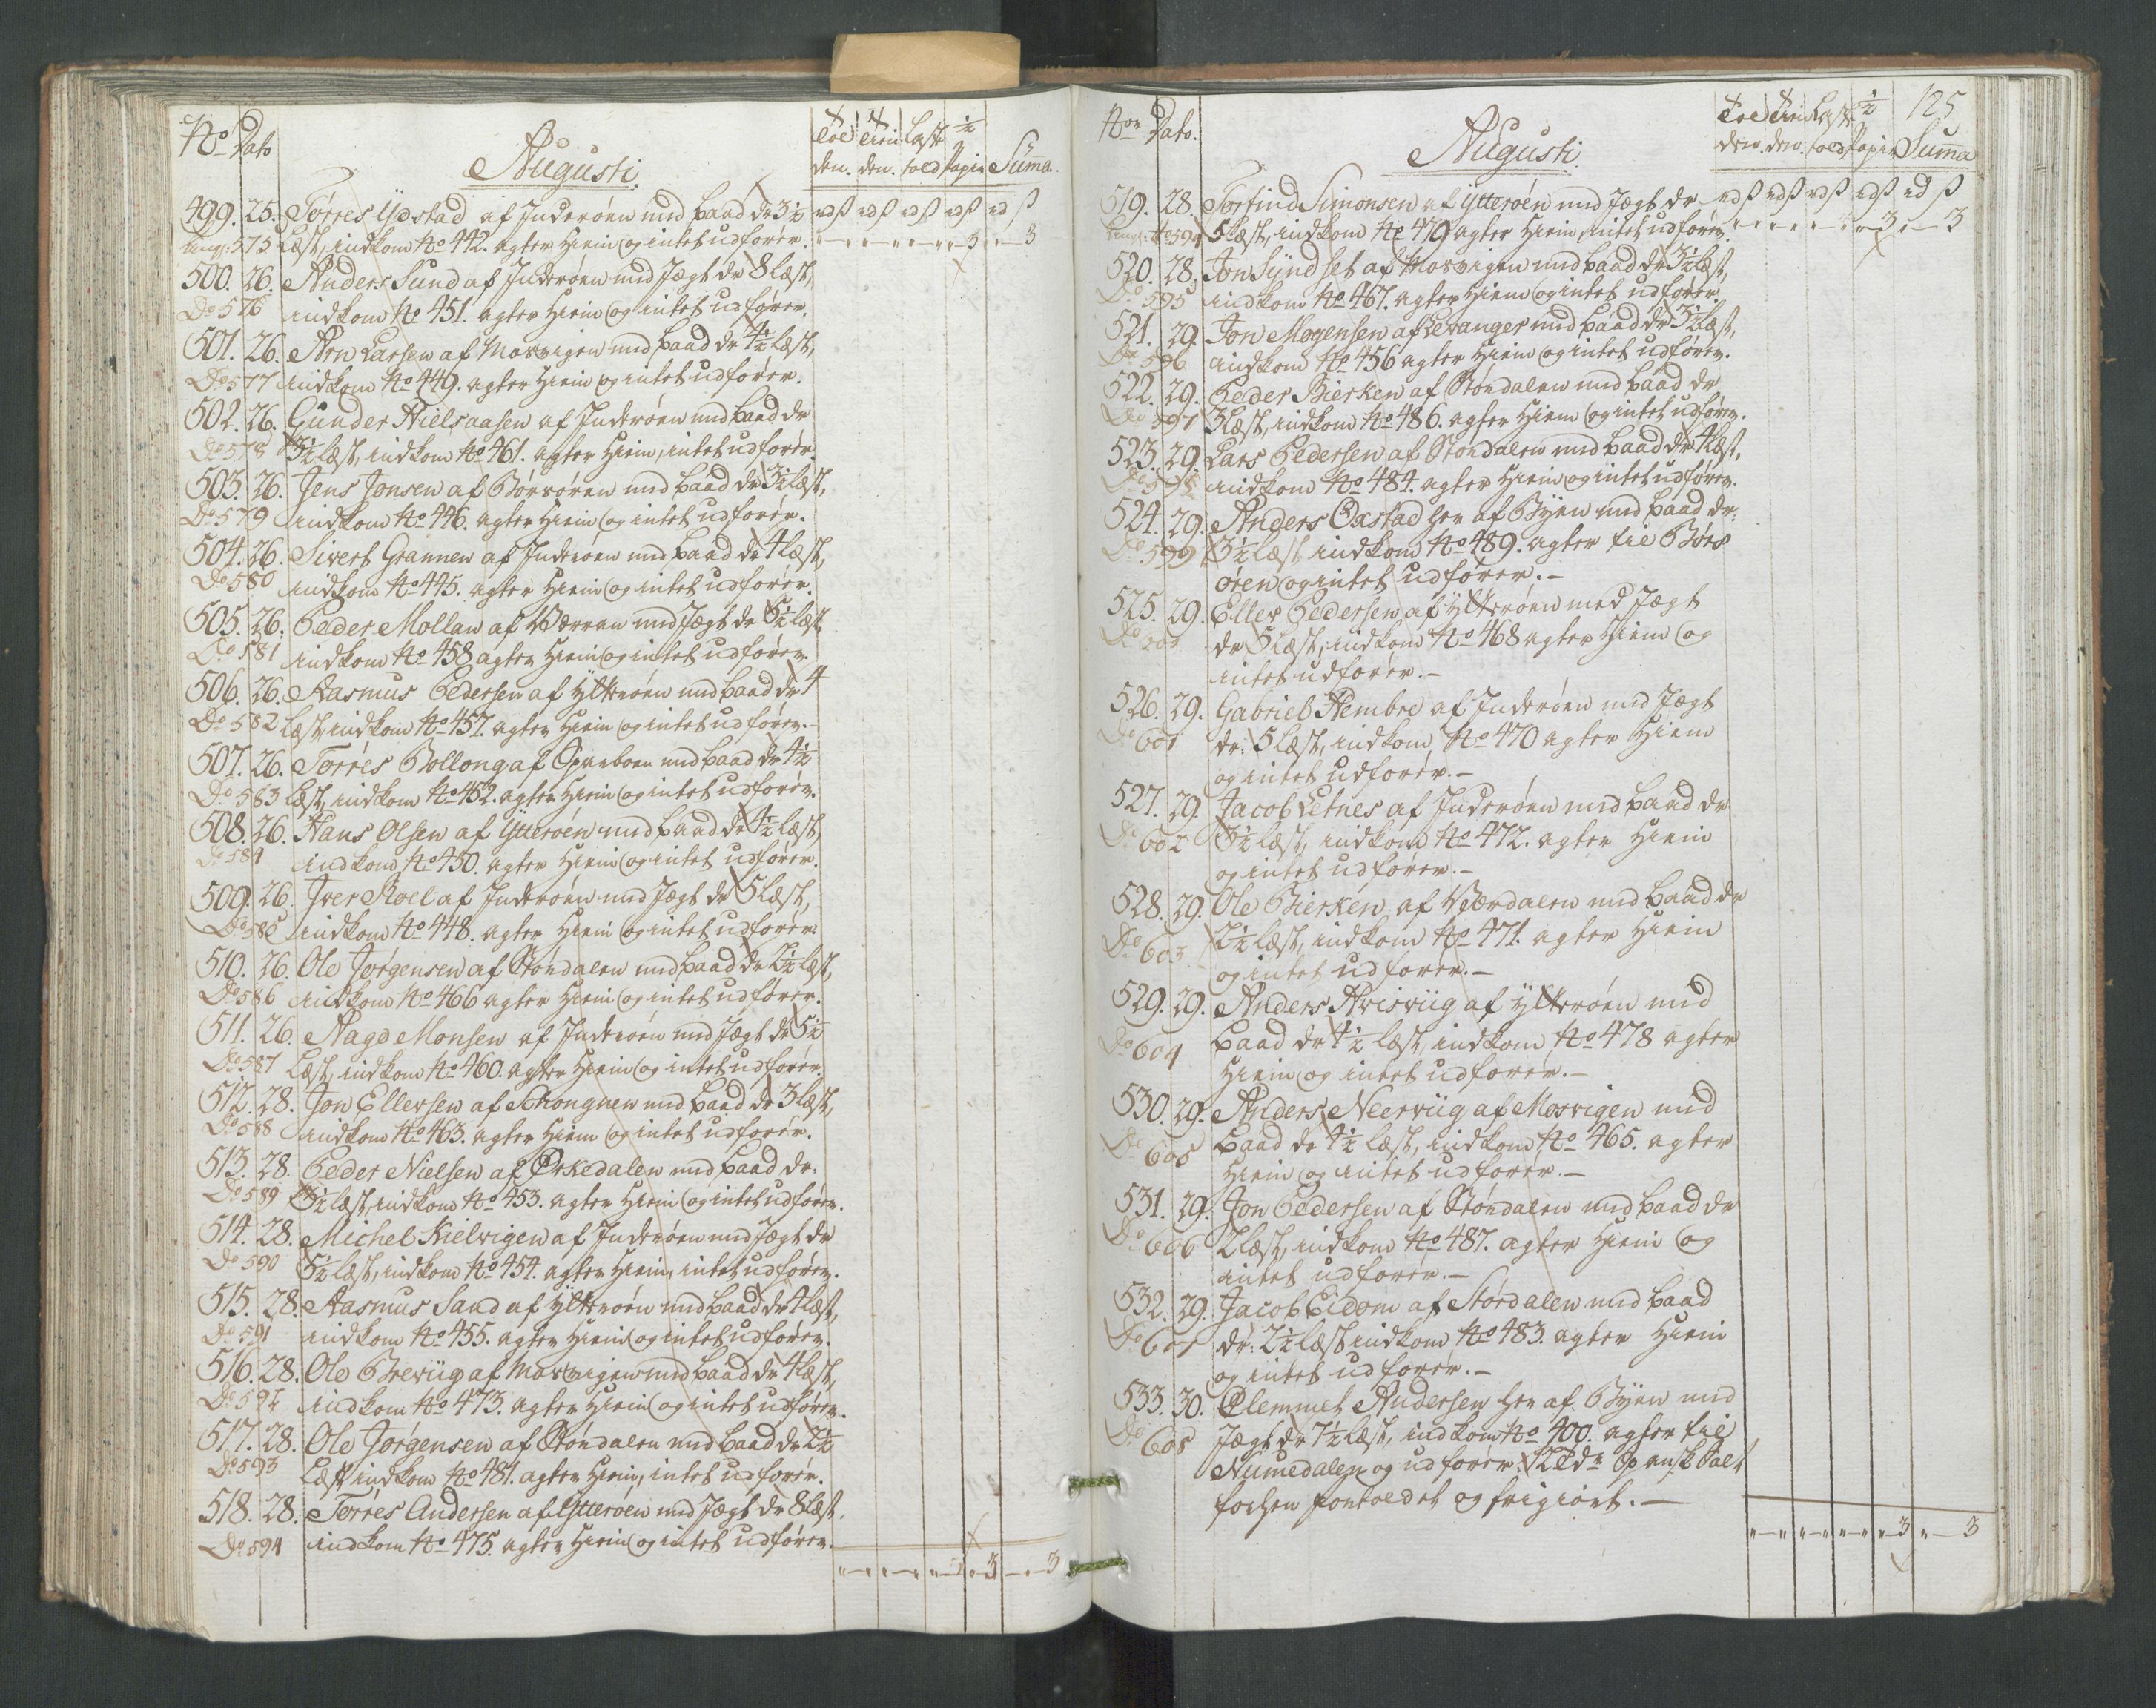 No Dato
Augusti
Toe den. Tien den. Last told ½ Papir Suma.
499. 25. Torres Ydstad af Inderöen med baad dr 3½
Ang: 575 Læst, indkom No 442. agter Hiem og intet udfører. 3 3
500. 26. Anders Sund af Inderöen med Jægt dr 8 Læst,
Do 576 indkom No 451. agter Hiem og intet udfører.
501. 26. Arn Larsen af Mosvigen med baad dr 4½ Læst,
Do 577 indkom No 449. agter Hiem og intet udfører.
502. 26. Gunder Nielsaasen af Inderöen med baad dr
Do 578 3½ Læst, indkom No 461. agter Hiem, intet udfører.
503. 26. Jens Jonsen af Börsören med baad dr 3½ Læst,
Do 579 indkom No 446. agter Hiem og intet udfører.
504. 26. Sivert Grannen af Inderöen med baad dr 4 Læst,
Do 580 indkom No 445. agter Hiem og intet udfører.
505. 26. Peder Mollan af Værran med Jægt dr 5½ Læst,
Do 581 indkom No 458 agter Hiem og intet udfører.
506. 26. Rasmus Pedersen af Ytteröen med baad dr 4
Do 582 Læst, indkom No 457. agter Hiem og intet udfører.
507. 26. Torres Bollong af Sparboen med baad dr 4½
Do 583 Læst, indkom No 452. agter Hiem og intet udfører.
508. 26. Hans Olsen af Ytteröen med baad dr 4½ Læst,
Do 584 indkom No 450. agter Hiem og intet udfører.
509. 26. Iver Roel af Inderöen med Jægt dr 5 Læst,
Do 585 indkom No 448. agter Hiem og intet udfører.
510. 26. Ole Jorgensen af Stördalen med baad dr 2½ Læst,
Do 586 indkom No 466 agter Hiem og intet udfører.
511. 26. Aage Monsen af Inderöen med Jægt dr 5½
Do 587 Læst, indkom No 460. agter Hiem og intet udfører.
512. 28. Jon Ellersen af Schongnen med baad dr 3 Læst,
Do 588 indkom No 463. agter Hiem og intet udfører.
513. 28. Peder Nielsen af Örkedalen med baad dr.
Do 589 3½ Læst, indkom No 453. agter Hiem og intet udfører.
514. 28. Michel Kielvigen af Inderöen med Jægt dr
Do 590 5½ Læst, indkom No 454. agter Hiem, intet udfører.
515. 28. Rasmus Sand af Ytteröen med baad dr 4 Læst,
Do 591 indkom No 455. agter Hiem og intet udfører.
516. 28. Ole Breviig af Mosvigen med baad dr 4 Læst,
Do 592 indkom No 473. agter Hiem og intet udfører.
517. 28. Ole Jörgensen af Stördalen med baad dr 2½
Do 593 Læst, indkom No 481. agter Hiem, intet udfører.
518. 28. Torres Andersen af Ytteröen med Jægt dr 8 Læst.
Do 594 indkom No 475. agter Hiem og intet udfører.
3 3
125
Nor Dato.
Augusti
Toe den. Tien den. Last told ½ Papir Suma
519. 28. Torfind Simonsen af Ytteröen med Jægt dr
Ang: No 594 5 Læst, indkom No 479 agter Hiem, intet udfører. 3 3
520. 28. Jon Syndset af Mosvigen med baad dr 3½ Læst,
Do 595 indkom No 467. agter Hiem og intet udfører.
521. 29. Jon Mogensen af Levanger med baad dr 3½ Læst,
Do 596 indkom No 456 agter Hiem og intet udfører.
522. 29. Peder Bierken af Stördalen med baad dr
Do 597 3 Læst, indkom No 486. agter Hiem og intet udfører.
523. 29. Lars Pedersen af Stördalen med baad dr 4 Læst,
Do 598 indkom No 484. agter Hiem og intet udfører.
524. 29. Anders Oxstad her af Byen med baad dr:
Do 599 3½ Læst indkom No 489. agter til Börs
ören og intet udfører. -
525. 29. Eller Pedersen af Ytteröen med Jægt
Do 600 dr 5 Læst, indkom No 468 agter Hiem og
intet udfører. -
526. 29. Gabriel Hembre af Inderöen med Jægt
Do 601 dr: 5 Læst, indkom No 470 agter Hiem
og intet udfører. -
527. 29. Jacob Letnes af Inderöen med baad dr
Do 602 3½ Læst, indkom No 472. agter Hiem
og intet udfører. -
528. 29. Ole Bierken af Værdalen med baad dr
Do 603 2½ Læst, indkom No 471. agter Hiem
og intet udfører. -
529. 29. Anders Hvisviig af Ytteröen med
Do 604 baad dr 4½ Læst, indkom No 478 agter
Hiem og intet udfører. -
530. 29. Anders Neerviig af Mosvigen med
Do 605 baad dr 4½ Læst, indkom No 465. agter
Hiem og intet udfører. -
531. 29. Jon Pedersen af Stördalen med baad dr
Do 606 2 Læst, indkom No 487. agter Hiem og
intet udfører. -
532. 29. Jacob Eidom af Stördalen med baad
Do 607 dr: 2½ Læst indkom No 483. agter Hiem
og intet udfører. -
533. 30. Clemmet Andersen her af Byen med
Do 608 Jægt dr 7½ Læst, indkom No 400. agter til
Numedalen og udfører: 12 Tdr Spansk Salt
forhen fortoldet og frigiort. -
3 3